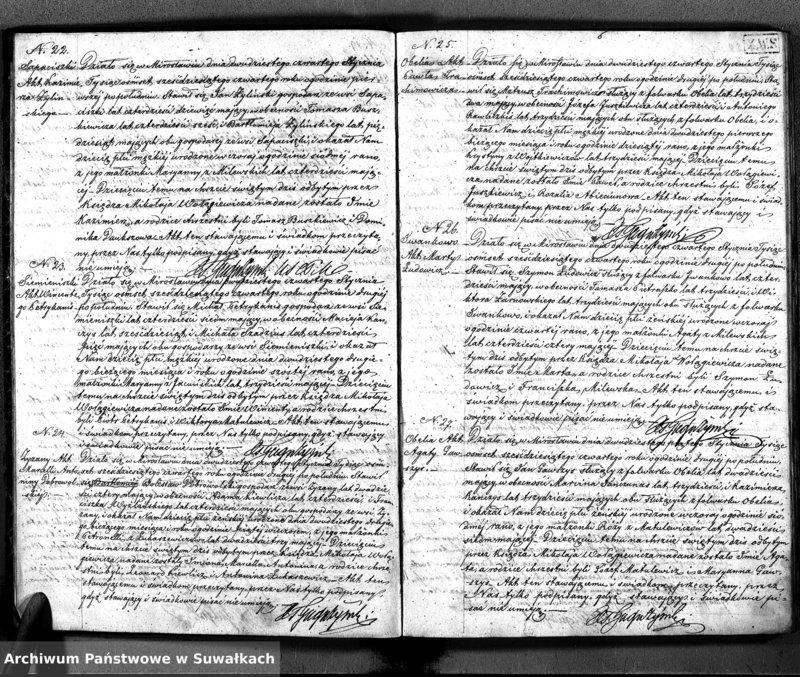 N. 22.
Sapaciszki
Akt Kazimie-
rza Żyliń-
skiego
Działo się w Mirosławiu dnia dwudziestego czwartego Stycznia
Tysiąc ośmset sześćdziesiątego czwartego roku o godzinie pier-
wszej po południu. Stawił się Jan Żyliński gospodarz ze wsi Sapa-
ciszki lat czterdzieści dziewięć mający w obecności Tomasza Busz-
kiewicza lat czterdzieści sześć i Bartłomieja Żylińskiego lat pię-
dziesiąt mających obu gospodarzy ze wsi Sapaciszki i okazał Nam
dziecię płci męzkiej urodzone wczoraj o godzinie siódmej rano,
z jego małżonki Maryanny z Milewskich lat czterdzieści mają-
cej. Dziecięciu temu na chrzcie świętym dziś odbytym przez
Księdza Mikołaja Wołągiewicza nadane zostało Imie
Kazimierz, a rodzice chrzestni byli Tomasz Buszkiewicz i Domi-
nika Akt ten stawającemu i świadkom przeczyta-
ny, przez Nas tylko podpisany, gdyż stawający i świadkowie pisać
nie umieją
N. 23.
Siemieniszki
Akt Wincente-
go
Działo się w Mirosławiu dnia dwudziestego czwartego Stycznia
Tysiąc ośmset sześćdziesiątego czwartego roku o godzinie drugiej
po południu. Stawił się Michał gospodarz ze wsi Sie-
mieniszki lat czterdzieści ośm mający w obecności Macieja Kan-
czys lat sześćdziesiąt i Michała lat czterdzieści
pięć mających obu gospodarzy ze wsi Siemieniszki i okazał
Nam dziecię płci męzkiej urodzone dnia dwudziestego drugie-
go bieżącego miesiąca i roku o godzinie szóstej rano, z jego
małżonki Maryanny z lat trzydzieści mającej. Dziecięciu
temu na chrzcie świętym dziś odbytym przez Księdza Mikołaja
Wołągiewicza nadane zostało Imie Wincenty, a rodzice chrzestni
byli Piotr i Wiktorya Matulewicz. Akt ten stawającemu
i świadkom przeczytany, przez Nas tylko podpisany, gdyż stawający
i świadkowie pisać nie umieją
N. 24.
Żyzany Akt
Marcelli Anto-
niny Dobrowol-
skiej
Działo się w Mirosławiu dnia dwudziestego czwartego Stycznia Tysiąc ośm-
set sześćdziesiątego czwartego roku o godzinie po południu Stawił
się Bolesław Dobrowolski gospodarz ze wsi Żyzany lat dwadzie-
ścia cztery mający w obecności Adama lat czterdzieści i Fran-
ciszka lat czterdzieści mających obu gospodarzy ze wsi Ży-
zany, i okazał Nam dziecię płci żeńskiej urodzone dnia dwudziestego drugiego
bieżącego miesiąca i roku o godzinie wieczorem, z jego małżonki
Petronelli z Łukaszewiczów lat dwadzieścia trzy mającej. Dziecięciu
temu na chrzcie świętym dziś odbytym przez Księdza Mikołaja Woło-
giewicza nadane zostały Imiona Marcella Antonina, a rodzice chrze-
stni byli i Antonina Łukaszewicz. Akt ten
stawającemu i świadkom przeczytany, przez Nas tylko podpisany
gdyż stawający i świadkowie pisać nie umieją
N. 25.
Obelia Akt
Pawła Jra-
chimowicza
Działo się w Mirosławiu dnia dwudziestego czwartego Stycznia Tysiąc
ośmset sześćdziesiątego czwartego roku o godzinie drugiej po południu. Sta-
wił się Mateusz Jrachimowicz służący z folwarku Obelia, lat trzydzieści
dwa mający w obecności Józefa Juszkiewicza lat czterdzieści i Antoniego
lat trzydzieści mających obu służących z folwarku Obelia, i o-
kazał Nam dziecię płci męzkiej urodzone dnia dwudziestego pierwszego
bieżącego miesiąca i roku o godzinie dziesiątej rano, z jego małżonki
Krystyny z Wojtkiewiczów lat trzydzieści mającej. Dziecięciu temu
na chrzcie świętym dziś odbytym przez Księdza Mikołaja Wołągiewi-
cza nadane zostało Imie Paweł, a rodzice chrzestni byli Józef
Juszkiewicz i Rozalia Akt ten stawającemu i świad-
kom przeczytany przez Nas tylko podpisany, gdyż stawający i
świadkowie pisać nie umieją
N. 26.
Iwankowo
Akt Marty
Ludowicz
Działo się w Mirosławiu dnia dwudziestego czwartego Stycznia Tysiąc
ośmset sześćdziesiątego czwartego roku o godzinie drugiej po południu
Stawił się Szymon Ludowicz służący z folwarku Iwankowo lat czter-
dzieści mający, w obecności Tomasza Pietraszko lat trzydzieści i Wi-
ktora Żarnowskiego lat trzydzieści mających obu służących z folwarku
Iwankowo, i okazał Nam dziecię płci żeńskiej urodzone wczoraj
o godzinie czwartej rano, z jego małżonki Agaty z Milewskich
lat czterdzieści cztery mającej. Dziecięciu temu na chrzcie świę-
tym dziś odbytym przez Księdza Mikołaja Wołągiewicza nadane
zostało Imie Marta, a rodzice chrzestni byli Szymon Lu-
dowicz i Franciszka Milewska. Akt ten stawającemu i
świadkom przeczytany, przez Nas tylko podpisany, gdyż sta-
wający i świadkowie pisać nie umieją
N. 27.
Obelia Akt
Agaty Gaw-
szys.
Działo się w Mirosławiu dnia dwudziestego piątego Stycznia Tysiąc
ośmset sześćdziesiątego czwartego roku o godzinie drugiej po południu,
Stawił się Jan Gawszys służący z folwarku Obelia, lat dwadzieścia
mający, w obecności Marcina lat trzydzieści i Kazimierza
Kanczys lat trzydzieści mających obu służących z folwarku Obelia
i okazał Nam dziecię płci żeńskiej urodzone wczoraj o godzinie sió-
dmej rano, z jego małżonki Róży z Matulewiczów lat dwadzieścia
siedm mającej. Dziecięciu temu na chrzcie świętym dziś odbytym
przez Księdza Mikołaja Wołągiewicza nadane zostało Imie Aga-
ta, a rodzice chrzestni byli Józef Matulewicz i Maryanna Gaw-
szys. Akt ten stawającemu i świadkom przeczytany, przez
Nas tylko podpisany, gdyż stawający i świadkowie pi-
sać nie umieją
Archiwum Państwowe w Suwałkach